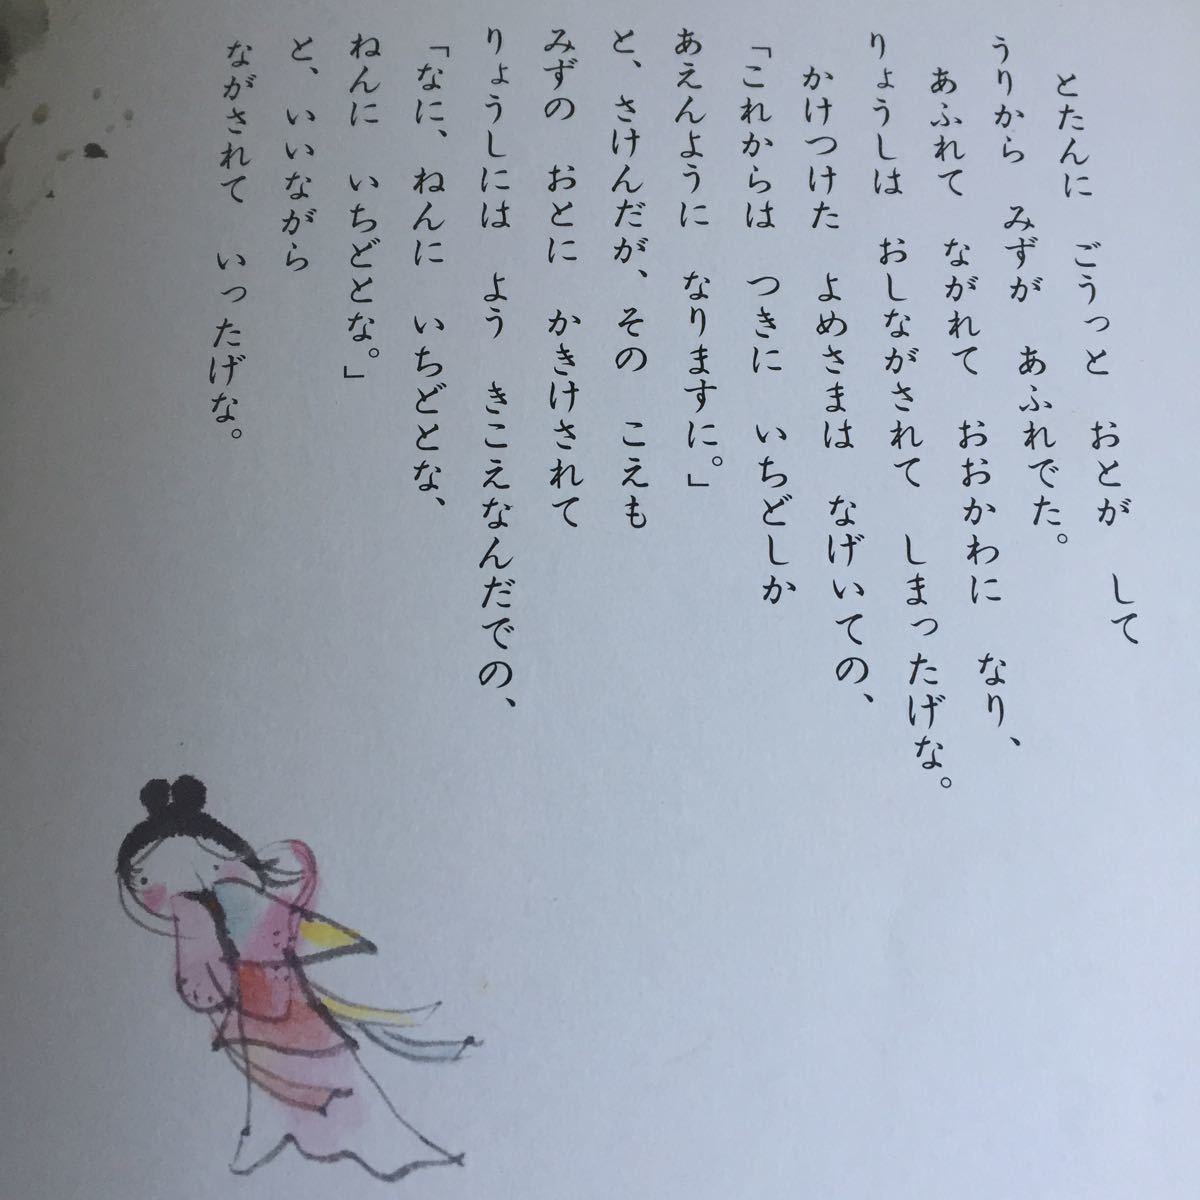 とたんに　ごうっと　おとが　して
うりから　みずが　あふれでた。
あふれて　ながれて　おおかわに　なり、
りょうしは　おしながされて　しまったげな。
かけつけた　よめさまは　なげいての、
「これからは　つきに　いちどしか
あえんように　なりますに。」
と、さけんだが、その　こえも
みずの　おとに　かきけされて
りょうしには　よう　きこえなんだでの、
「なに、ねんに　いちどとな、
ねんに　いちどとな。」
と、いいながら
ながされて　いったげな。